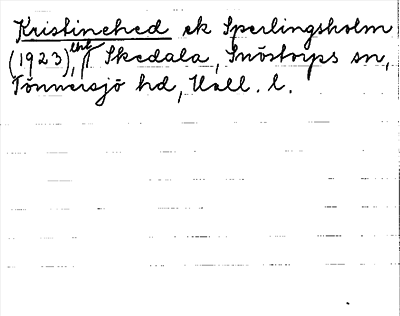 Kristinehed ek Sperlingsholm
(1923), lht u Skedala, Snöstorps sn,
Tönnersjö hd, Hall. l.